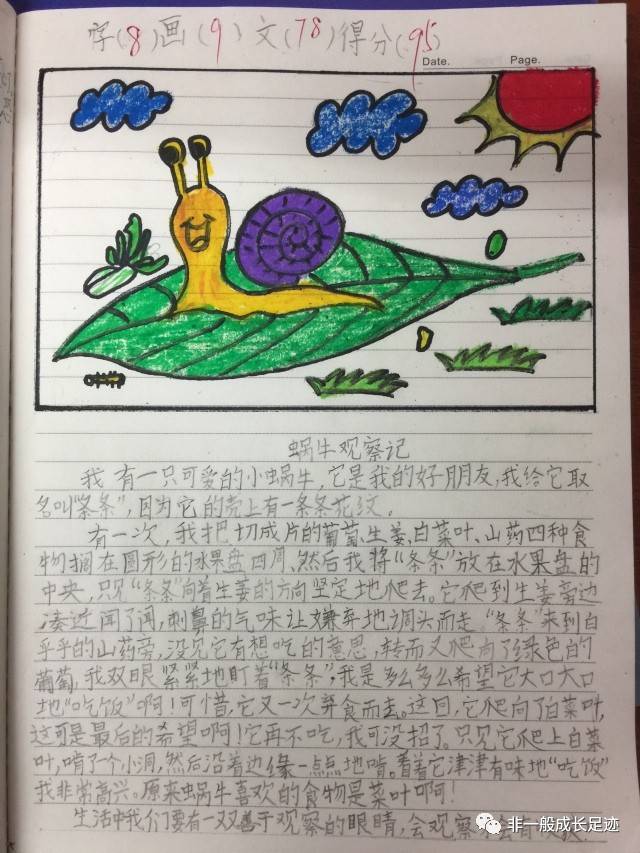 字(8)画(9)文(78)得分(95)
Date. Page.
蜗牛观察记
我有一只可爱的小蜗牛,它是我的好朋友,我给它取
名叫“条条”,因为它的壳上有一条条花纹。
有一次,我把切成片的葡萄、生姜、白菜叶、山药四种食
物搁在圆形的水果盘四周、然后我将“条条”放在水果盘的
中央,只见“条条”向着生姜的方向坚定地爬去。它爬到生姜旁边
,凑近闻了闻,刺鼻的气味让嫌弃地调头而走。“条条”来到白
乎乎的山药旁,没见它有想吃的意思,转而又爬向了绿色的
葡萄,我双眼紧紧地盯着“条条”,我是多么多么希望它大口大口
地“吃饭”啊!可惜,它又一次弃食而去。这回,它爬向了白菜叶,
这可是最后的希望啊!它再不吃,我可没招了。只见它爬上白菜
叶,啃了个小洞,然后沿着边缘一点点地啃。看着它津津有味地“吃饭”
我非常高兴。原来蜗牛喜欢的食物是菜叶啊!
生活中我们要有一双善于观察的眼睛,会观察才会有
非一般成长足迹